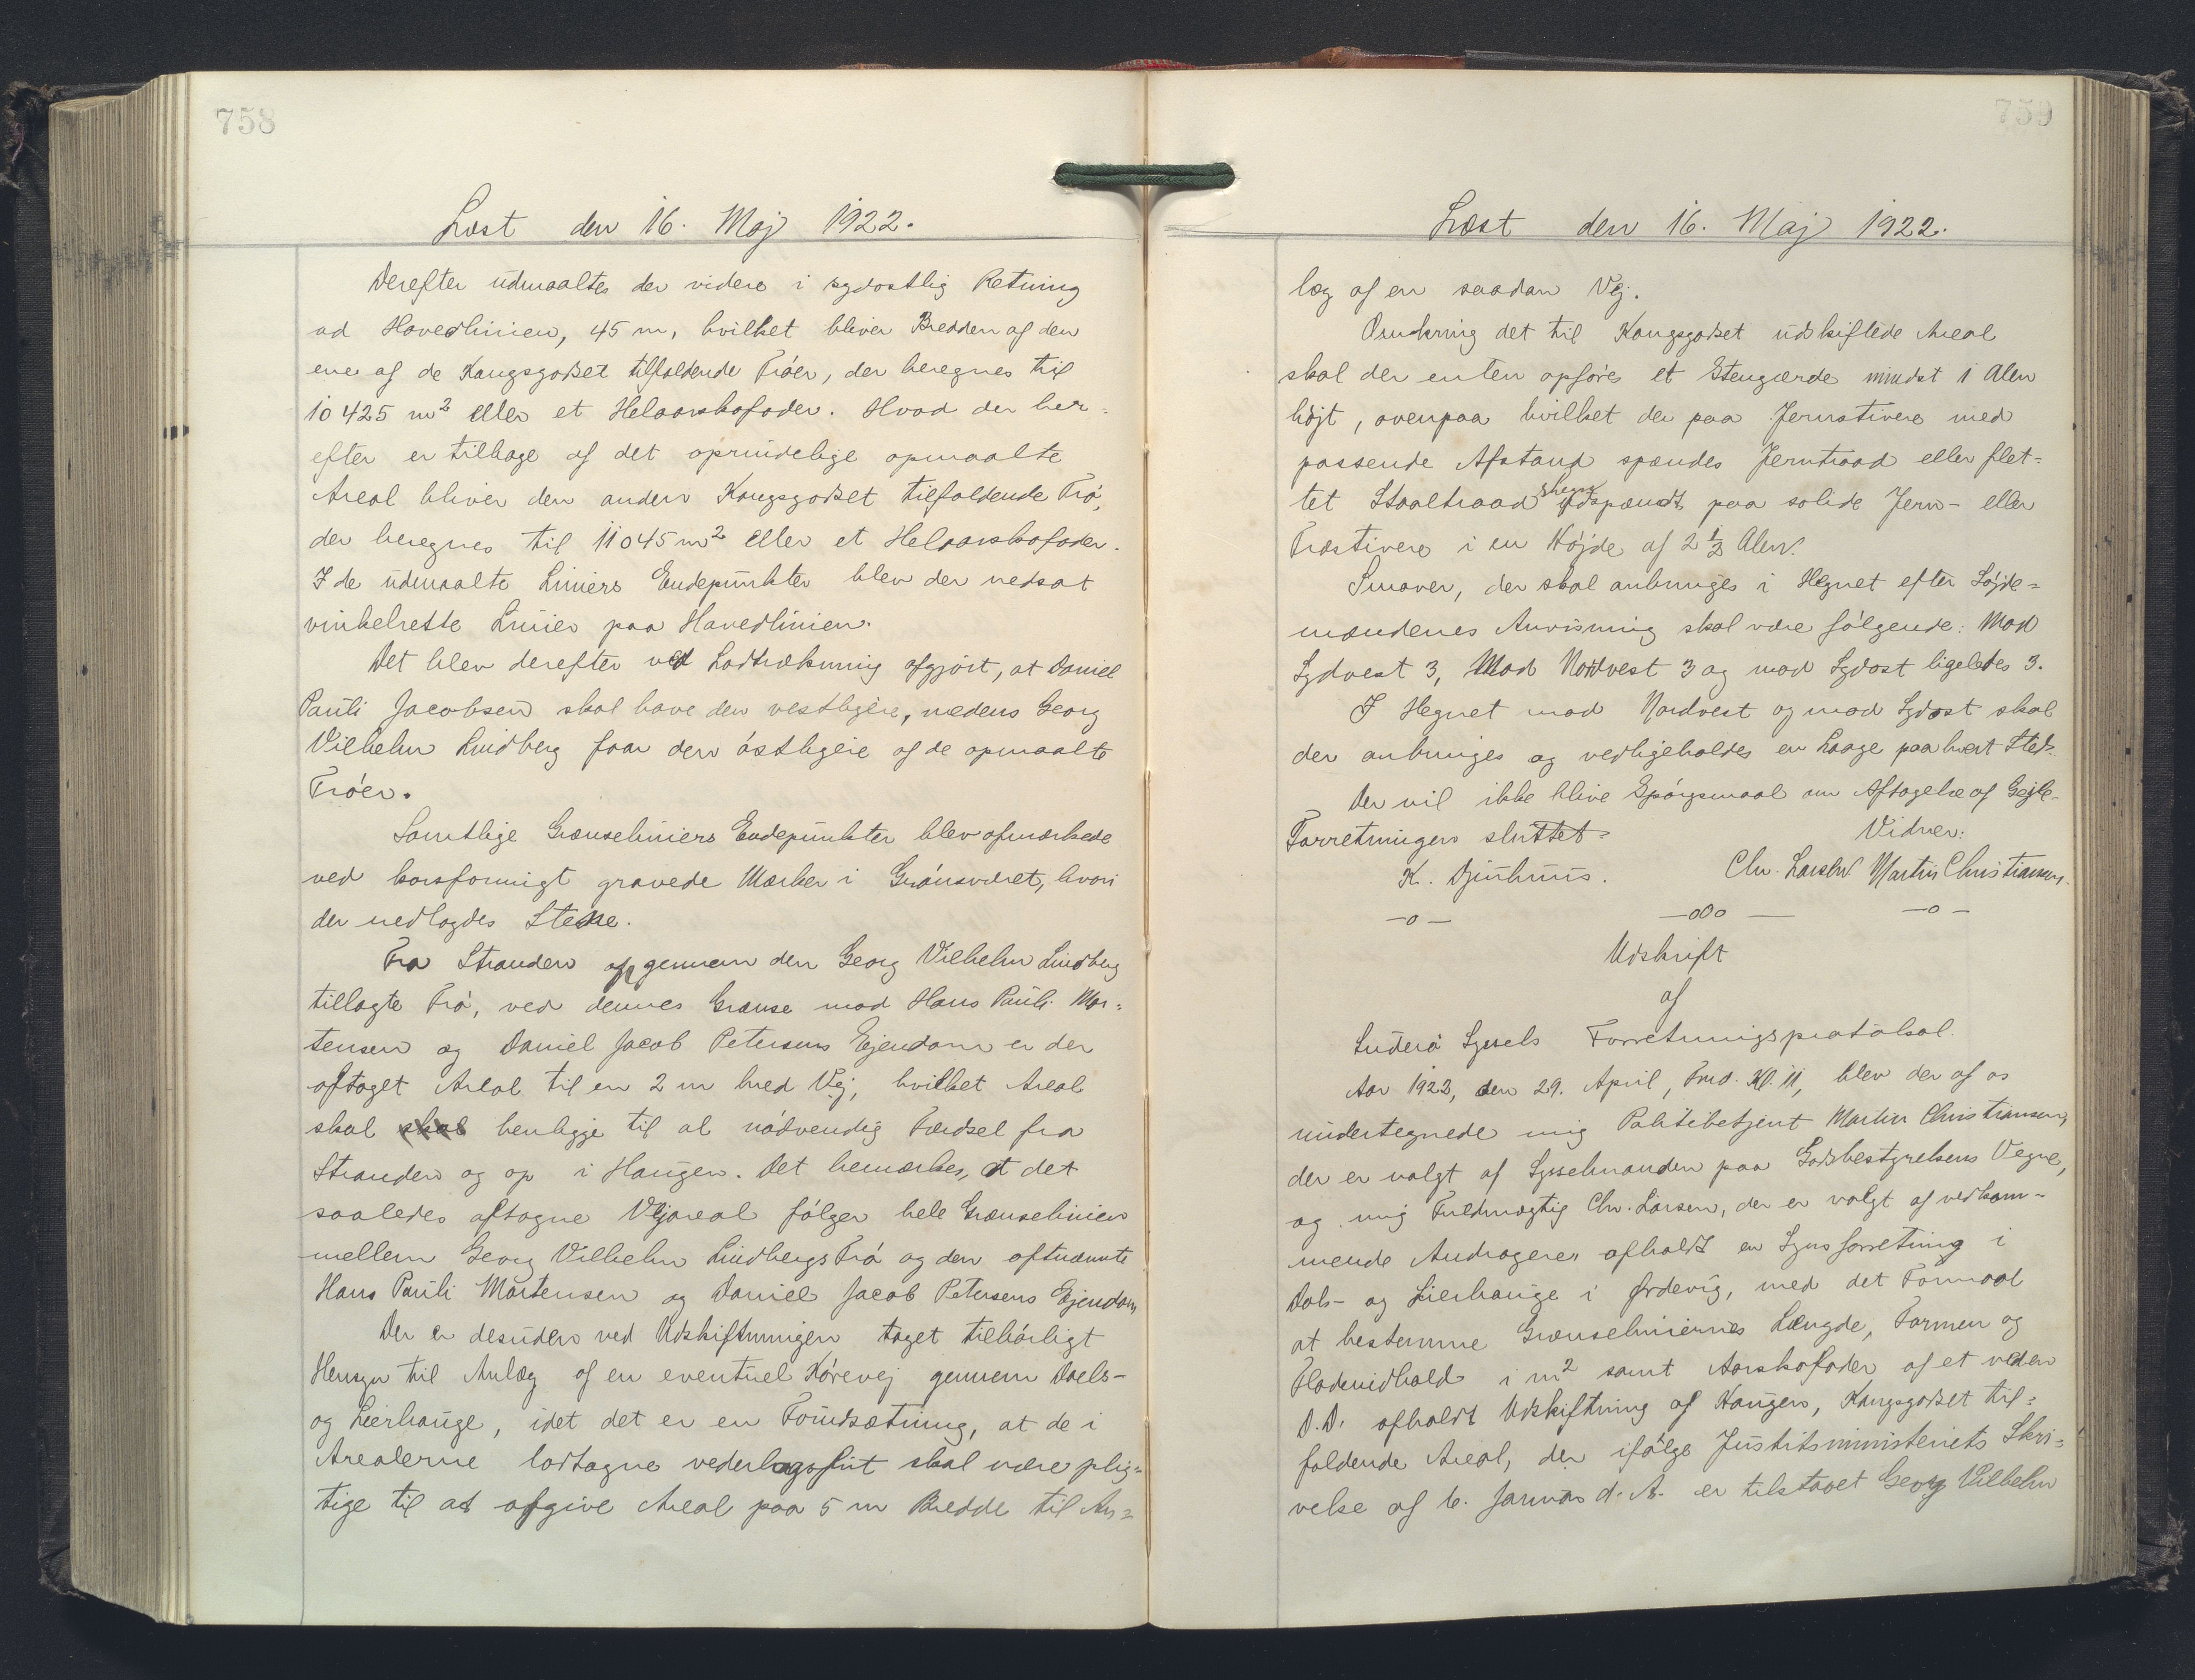 758
Læst den 16. Maj 1922.
Derefter udmaaltes der videre i sydøstlig Retning
ad Hovedlinien, 45 m, hvilket bliver Bredden af den
ene af de Kongsgodset tilfaldende Trøer, der beregnes til
10425 m² eller et Helaarskofoder. Hvad der her-
efter er tilbage af det oprindelige opmaalte
Areal bliver den anden Kongsgodset tilfaldende Trø,
der beregnes til 11045 m² eller et Helaarskofoder.
I de udmaalte Liniers Endepunkter blev der nedsat
vinkelrette Linier paa Hovedlinien.
Det blev derefter ved Lodtrækning afgjort, at Daniel
Pauli Jacobsen skal have den vestligere, medens Georg
Vilhelm Lindberg faar den østligere af de opmaalte
Trøer.
Samtlige Grænseliniers Endepunkter blev afmærkede
ved korsformigt gravede Mærker i Grønsværet, hvori
der nedlagdes Stene.
Fra Stranden op gennem den Georg Vilhelm Lindberg
tillagte Trø, ved dennes Grænse mod Hans Pauli Mor-
tensen og Daniel Jacob Petersens Ejendom er der
aftaget Areal til en 2 m bred Vej, hvilket Areal
skal skal henligge til al nødvendig Færdsel fra
Stranden og op i Haugen. Det bemærkes, at det
saaledes aftagne Vejareal følger hele Grænselinien
mellem Georg Vilhelm Lindbergs Trø og den oftnævnte
Hans Pauli Mortensen og Daniel Jacob Petersens Ejendom
Der er desuden ved Udskiftningen taget tilbørligt
Hensyn til Anlæg af en eventuel Kørevej gennem Dals-
og Leirhauge, idet det er en Forudsætning, at de i
Arealerne lodtagne vederlagsfrit skal være plig-
tige til at afgive Areal paa 5 m Bredde til An-
759
Læst den 16. Maj 1922.
læg af en saadan Vej.
Omkring det til Kongsgodset udskiftede Areal
skal der enten opføres et Stengærde mindst 1 Alen
højt, ovenpaa hvilket der paa Jernstivere med
passende Afstand spændes Jerntraad eller flet-
tet Staaltraadshegn udspændt paa solide Jern- eller
Træstivere i en Højde af 2 1/2 Alen.
Smaaer, der skal anbringes i Hegnet efter Syns-
mændenes Anvisning skal være følgende: Mod
Sydvest 3, Mod Nordvest 3 og mod Sydøst ligeledes 3.
I Hegnet mod Nordvest og mod Sydøst skal
der anbringes og vedligeholdes en Laage paa hvert Sted.
Der vil ikke blive Spørgsmaal om Aftagelse af
Forretningen sluttet.
Vidner:
K. Djurhuus.
Chr. Larsen Martin Christiansen.
—o— —oOo— —o—
Udskrift
af
Suderø Syssels Forretningsprotokol.
Aar 1922, den 29. April, Fmd. Kl. 11, blev der af os
undertegnede mig Politibetjent Martin Christiansen,
der er valgt af Sysselmanden paa Godsbestyrelsens Vegne,
og mig Fuldmægtig Chr. Larsen, der er valgt af vedkom-
mende Andragere afholdt en Synsforretning i
Dals- og Leirhauge i Ørdevig, med det Formaal
at bestemme Grænseliniernes Længde, Formen og
Fladeindhold i m² samt Aarskofoder af et ved en
D.D. afholdt Udskiftning af Haugen, Kongsgodset til-
faldende Areal, der ifølge Justitsministeriets Skri-
velse af 6. Januar d. A. er tilstaaet Georg Vilhelm